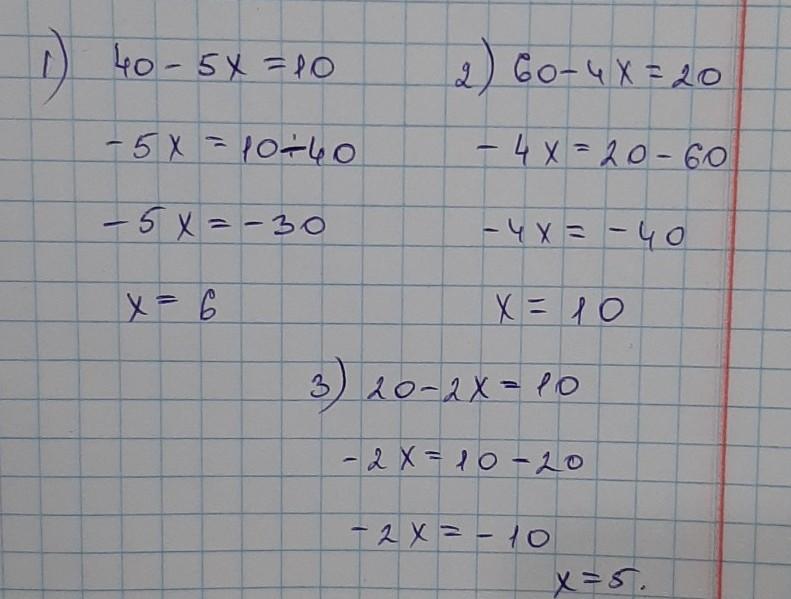 1) 40 - 5x = 10
-5x = 10 ÷ 40
-5x = -30
x = 6
2) 60 - 4x = 20
-4x = 20 - 60
-4x = -40
x = 10
3) 20 - 2x = 10
-2x = 10 - 20
-2x = -10
x = 5.